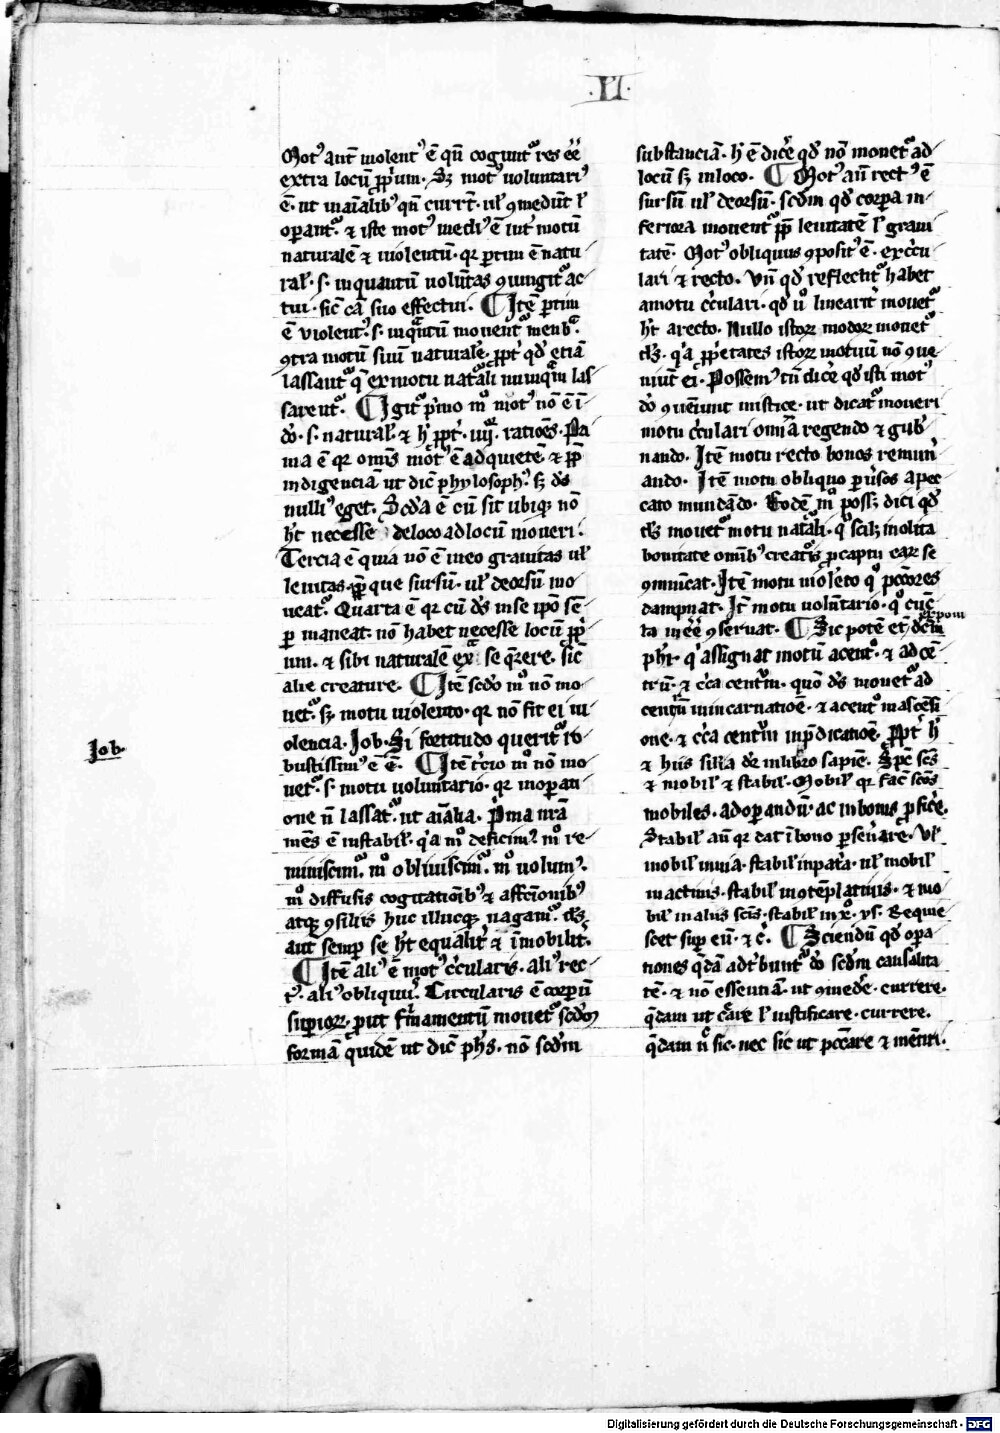 .II.
Motꝰ aut̄ uiolentꝰ ē qn̄ cogunt᷑ res ēē
extra locū ꝓp̄ium. Sꝫ motꝰ uoluntariꝰ
ē. ut in aīalibꝰ qn̄ currt̄. ul̓ ꝯmedūt l̓
operant᷑. ⁊ iste motꝰ mediꝰ ē int̓ motū
naturalē ⁊ uiolentū. qr partim ē natu-
ral̓. s. inquantū volūtas ꝯiungit᷑ ac-
tui. sic̄ cā suo effectui. ¶ Itē ptim
ē violentꝰ. s. inqͣntū mouent᷑ menbͣ.
ꝯtra motū suū naturalē. ꝓpt̓ qd̓ etiā
lassant᷑ qͣ ex motu nat᷑ali nunqͣm las-
sarent᷑. ¶ Igit᷑ p̓mo mͦ motꝰ nō ē ī
dō. s. natural̓. ⁊ h̓ ꝓpt̓. iiij. ratiōes. P̄i-
ma ē qr omīs motꝰ ē ad quietē. ⁊ ꝓpt̓
indigenciā ut dic̄ phylosophꝰ. sꝫ d̄s
nulliꝰ eget. Scd̓a ē cū sit ubiqꝫ nō
h̓t necesse de loco ad locū moueri.
Tercia ē quia nō ē in eo grauitas ul̓
leuitas. ꝓpt̓ que sursū. ul̓ deorsū mo-
ueat᷑. Quarta ē qr cū d̄s in se ip̄o sē-
ꝑ maneat. nō habet necesse locū ꝓpͥ-
um. ⁊ sibi naturalē exͣ se q̄rere. sic̄
alie creature. ¶ Itē scd̓o mͦ nō mo-
uet᷑. sꝫ motu uiolento. qr nō fit ei ui-
olencia. Job. Si fortitudo querit᷑ ro-
bustissimꝰ ē. ¶ Itē t̓cio mͦ nō mo-
uet᷑. s. motu uoluntario. qr in operati-
one n̄ lassat᷑. ut aīalia. P̓ma nr̄a
mēs ē instabil̓. qͥa mͦ deficimꝰ. mͦ re-
miniscim᷑. mͦ obliuiscim᷑. mͦ uolumꝰ.
mͦ diffusis cogitatiōibꝰ ⁊ affcīonibꝰ
atqꝫ ꝯsiliis huc illucqꝫ uagam᷑. d̄s
aut̄ semper se h̓t equalit̓ ⁊ īmobilit̓.
¶ Itē aliꝰ ē motꝰ cͥcularis. aliꝰ rec-
tꝰ. aliꝰ obliquꝰ. Circularis ē corporū
superioꝝ. prout firmamentū mouet᷑ scd̓m
formā quidē ut dic̄ ph̓s. nō scd̓m
Job
substanciā. h̓ ē dic̓e qd̓ nō mouet᷑ ad
locū sꝫ in loco. ¶ Motꝰ aut̄ rectꝰ ē
sursū ul̓ deorsū. scd̓m qd̓ corpora in-
feriora mouent᷑ ꝓpt̓ leuitatē l̓ graui-
tatē. Motꝰ obliquus ꝯpositꝰ ē. ex cͥcu-
lari ⁊ recto. Un̄ qd̓ reflectit᷑ habet
a motu cͥculari. qd̓ uͦ linearit̓ mouet᷑
h̓t a recto. Nullo istoꝝ modoꝝ mouet᷑
d̄s. qͥa ꝓp̓etates istoꝝ motuū nō ꝯue-
niūt ei. Possemꝰ tn̄ dic̓e qd̓ isti motꝰ
dō ꝯueniunt mistice. ut dicat᷑ moueri
motu cͥculari omīa regendo ⁊ gub̓-
nando. Itē motu recto bonos remun̓-
ando. Itē motu obliquo ꝑuersos a pec-
cato mundādo. Eodē mͦ possꝫ dici qd̓
d̄s mouet᷑ motu nat᷑ali. qͦ scilꝫ in solita
bonitate omībꝰ creatͥs ꝑ captū eaꝝ se
ꝯmunicat. Itē motu uiolēto qͦ pcc̄ores
dampnat. It̄ motu voluntario. qͦ cunc-
ta in ēē ꝯseruat. ¶ Sic potest et̄ dc̄m exponi
phi̓. qͥ assignat motū a centͦ. ⁊ ad cē-
trū. ⁊ cͥca centrū. quō d̄s mouet᷑ ad
centrū in incarnatiōe. ⁊ a centͦ in ascensi-
one. ⁊ cͥca centrū in p̄dicatiōe. Ꝓpt̓ h̓
⁊ hiis silia dr̄ in libro sapiē. Sp̄c scs̄
⁊ mobil̓ ⁊ stabil̓. Mobil̓ qr fac̄ scōs
mobiles. ad operandū ac in bonis ꝓfic̓e.
Stabil̓ aut̄ qr dat ī bono ꝑseuerare. Ul̓
mobil̓ in uia. stabil̓ in pat̓a. ul̓ mobil̓
in actiuis. stabil̓ in ꝯtēplatiuis. ⁊ mo-
bil̓ in aliis scīs. stabil̓ in xͦ. ys. Requie-
scet sup̓ eū. ⁊ c̓. ¶ Sciendū qd̓ opera-
tiones qͣdā adt̓buunt᷑ dō scd̓m causalita-
tē. ⁊ nō essentiā. ut ꝯmedere. currere.
qͣdam ut cͣre l̓ iustificare. currere.
qͣdam nͦ sic. nec sic ut pccāre ⁊ mētiri.
Digitalisierung gefördert durch die Deutsche Forschungsgemeinschaft · DFG